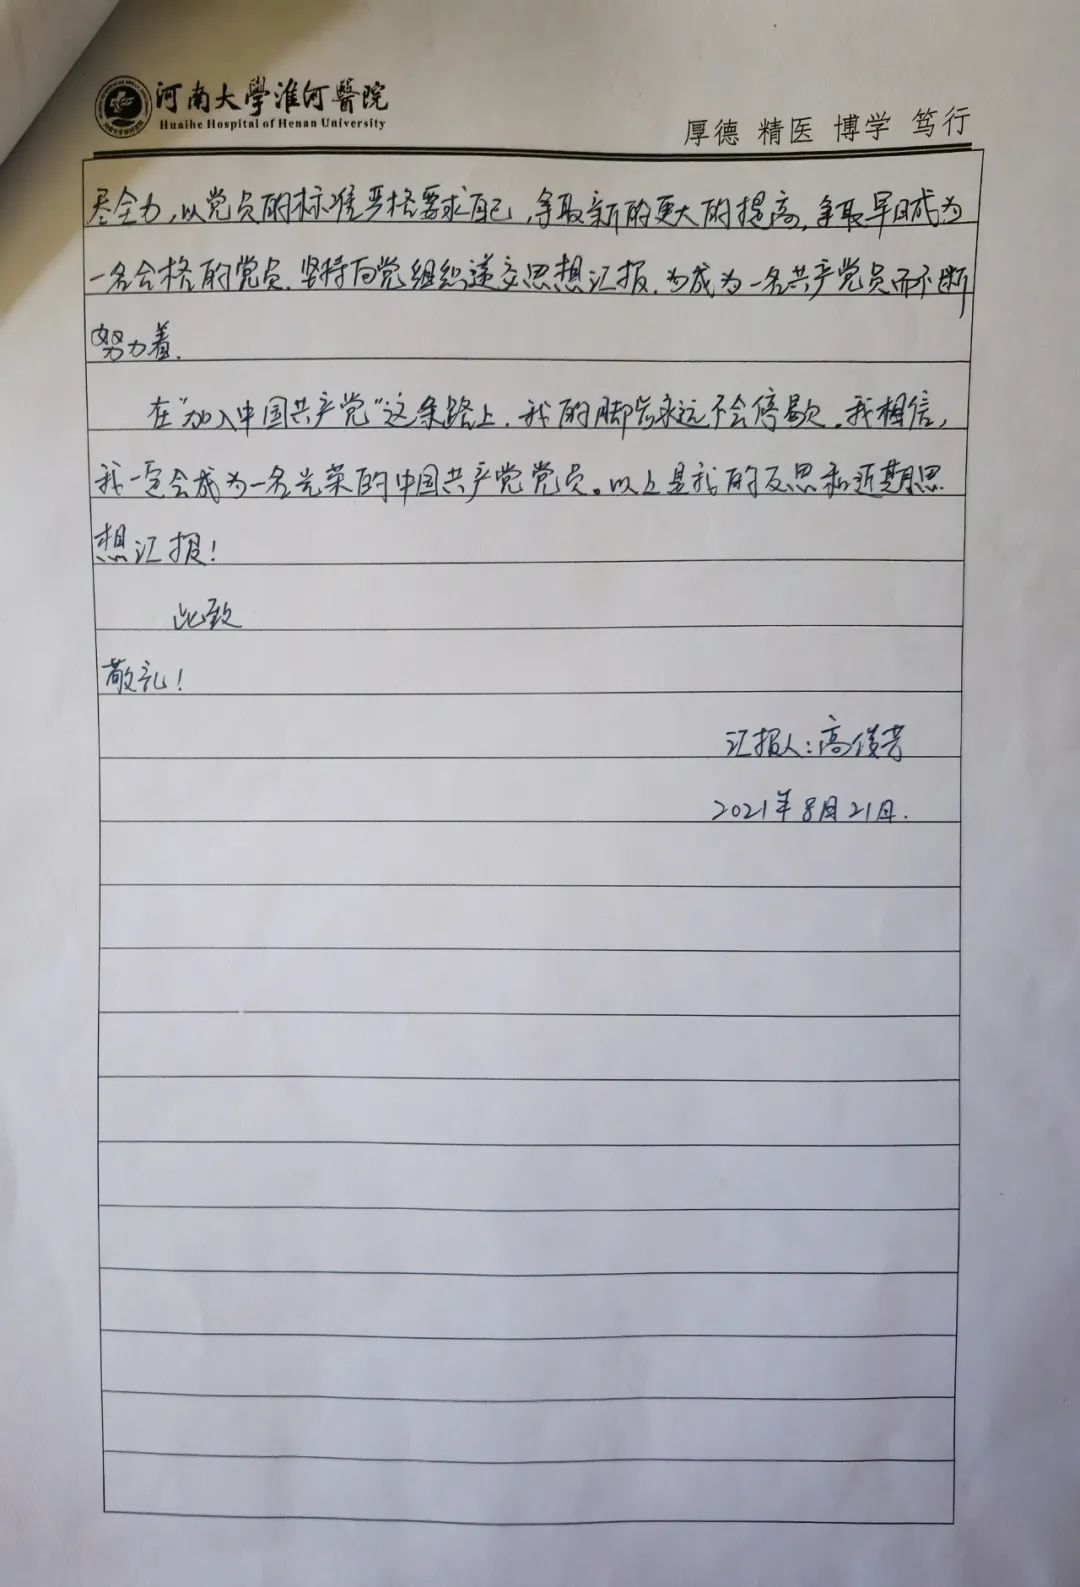 河南大學淮河醫院
Huaihe Hospital of Henan University
厚德 精医 博学 笃行
尽全力,以党员的标准严格要求自己,争取新的更大的提高,争取早日成为
一名合格的党员.坚持向党组织递交思想汇报.为成为一名共产党员而不断
努力着.
在"加入中国共产党"这条路上.我的脚步永远不会停歇.我相信,
我一定会成为一名光荣的中国共产党党员。以上是我的反思和近期思
想汇报!
此致
敬礼!
汇报人:高俊芳
2021年8月21日.